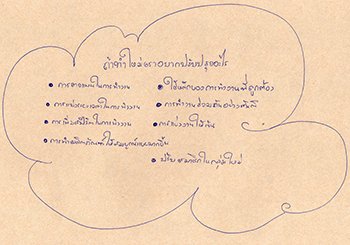 ถ้าทำใหม่เราอยากปรับปรุงอะไร
• การวางแผนในการทำงาน
• การแบ่งเวลาในการทำงาน
• การในการทำงาน
• การทำผลิตภัณฑ์ให้สมบูรณ์มากขึ้น
• ใช้หลักของการทำงานที่ถูกต้อง
• การทำงานร่วมกันอย่างเต็มที่
• การแบ่งงานให้เป็น
• ปรับสมาชิกในกลุ่มใหม่